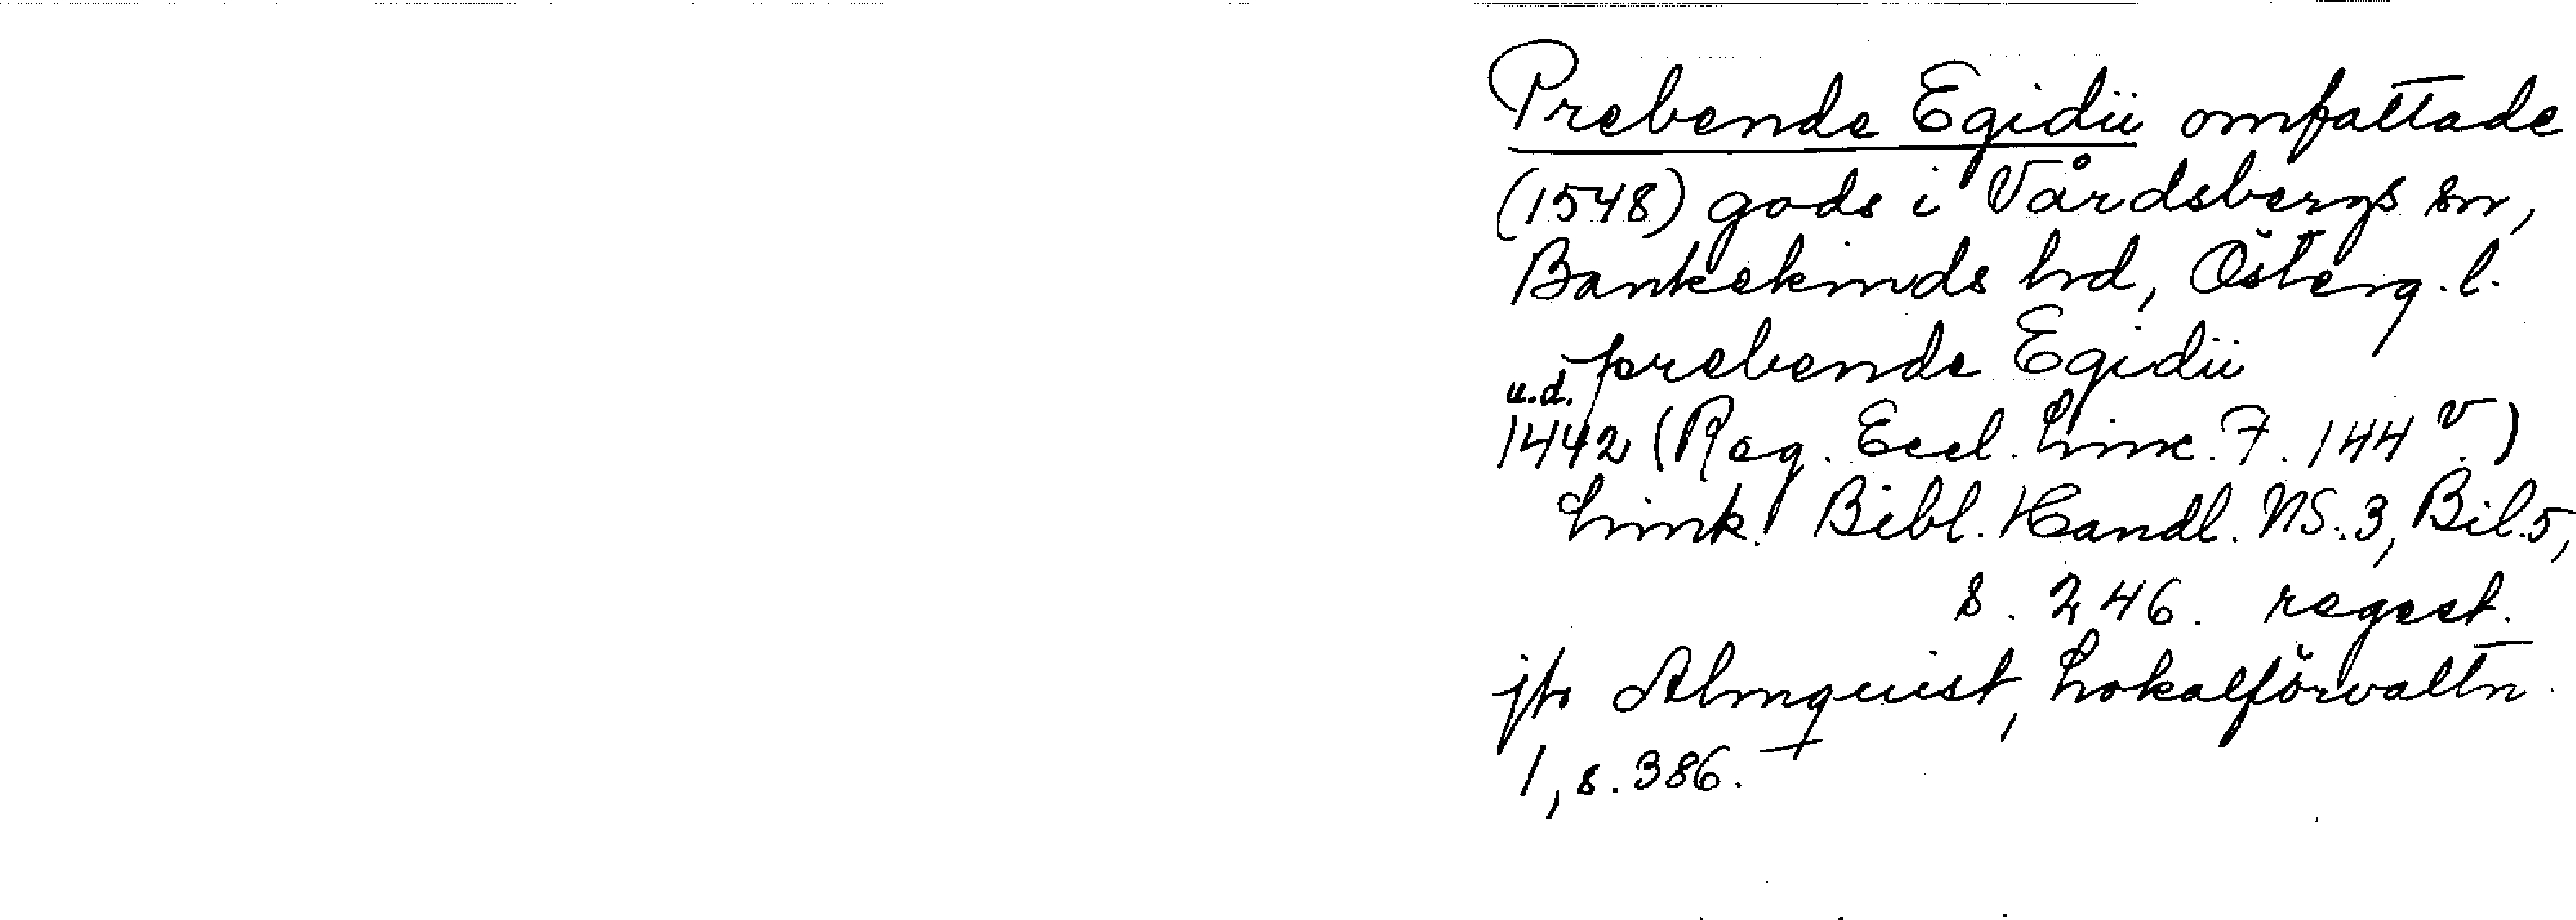 Prebende Egidii omfattade
(1548) gods i Vårdsbergs sn,
Bankekinds hd, Österg. l.
prebende Egidii
u.d.
1442 (Reg. Eccl. Linc. F. 144 v.)
Link. Bibl. Handl. NS. 3, Bil. 5,
s. 246. regest.
jfr Almquist, Lokalförvaltn.
1, s. 386.